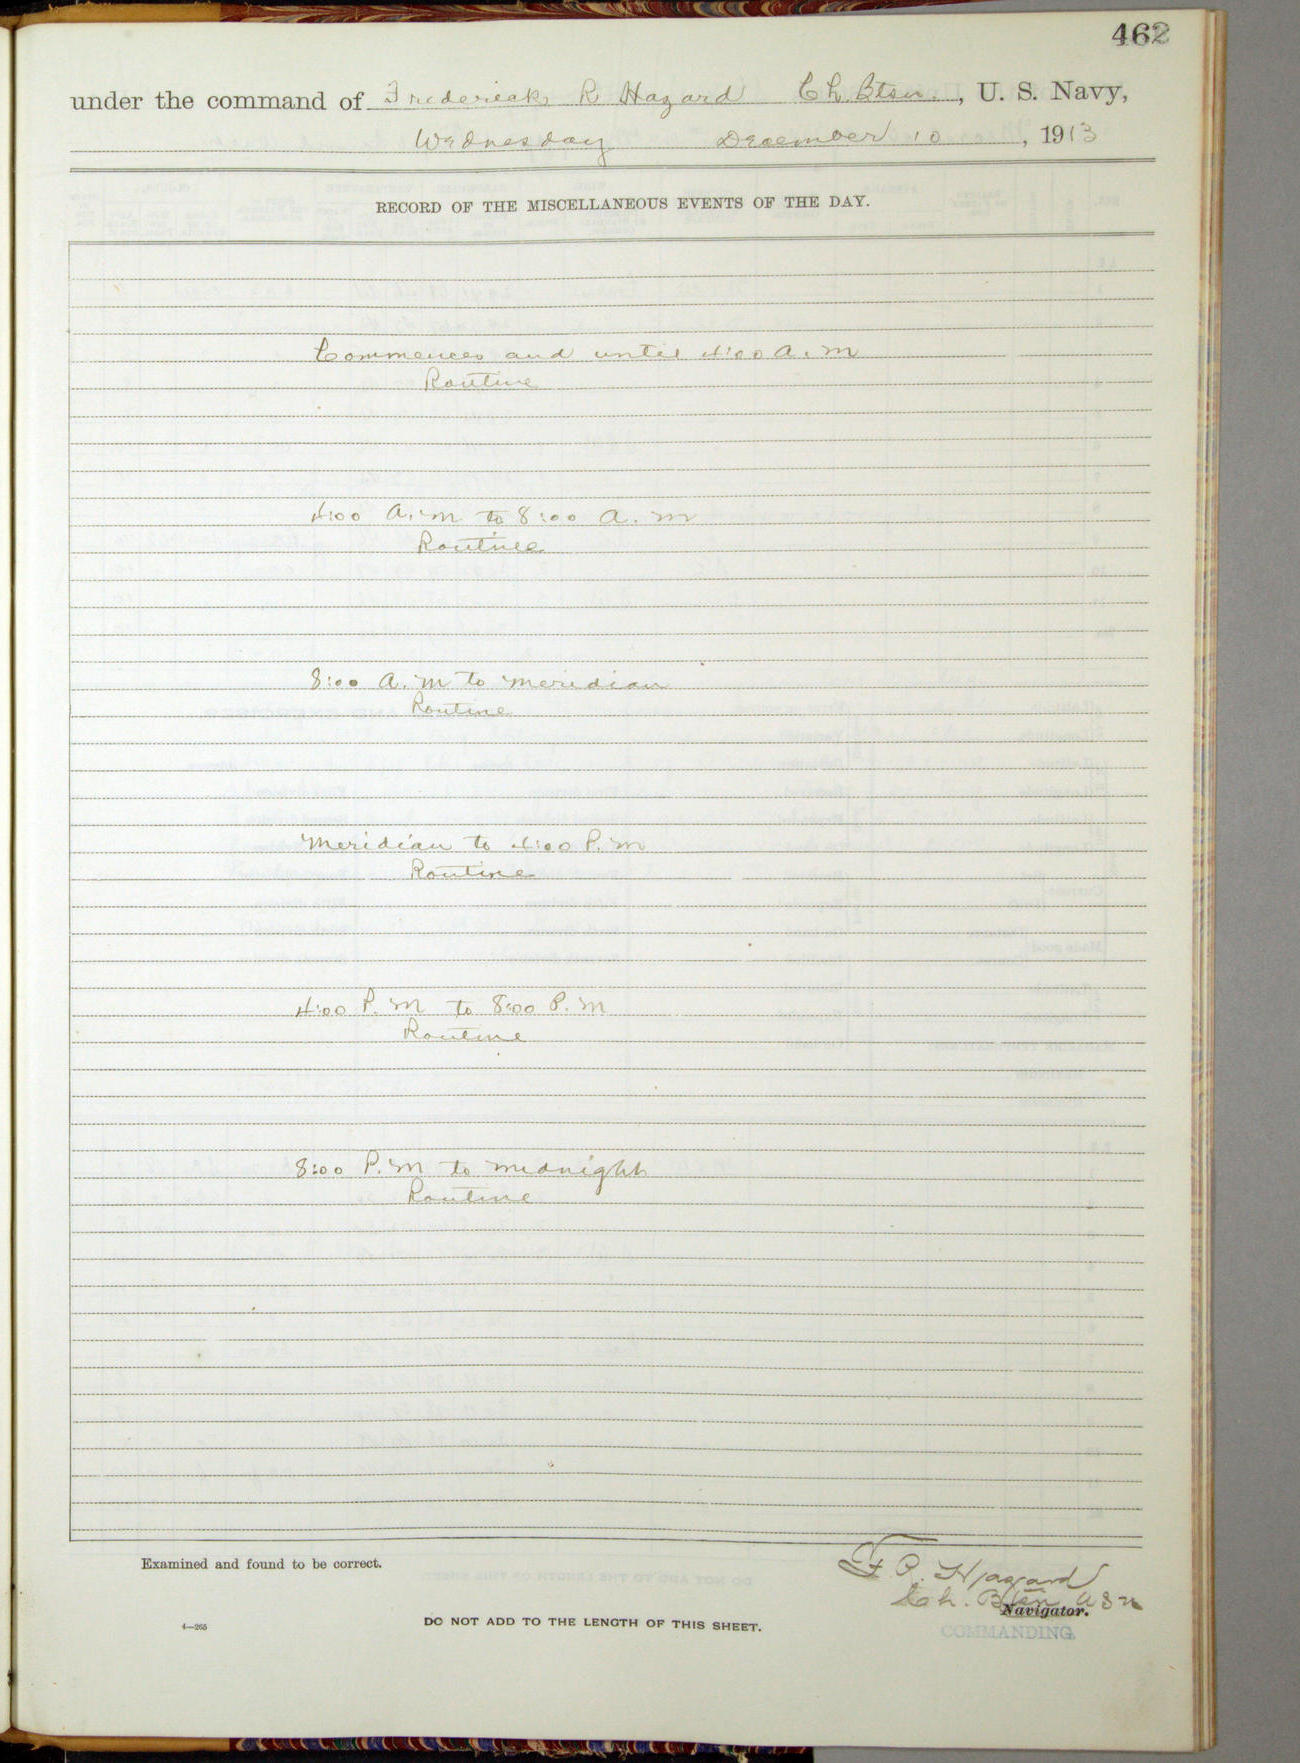 462
under the command of Frederick R Hazard Ch. Btsn. , U. S. Navy,
Wednesday December 10 , 1913
RECORD OF THE MISCELLANEOUS EVENTS OF THE DAY.
Commences and until 4:00 A.M
Routine
4:00 A.M to 8:00 A.M
Routine
8:00 A.M to Meridian
Routine
Meridian to 4:00 P.M
Routine
4:00 P.M to 8:00 P.M
Routine
8:00 P.M to Midnight
Routine
Examined and found to be correct.
F. R. Hazard
Ch. Btsn USN
Navigator.
COMMANDING.
4—265
DO NOT ADD TO THE LENGTH OF THIS SHEET.